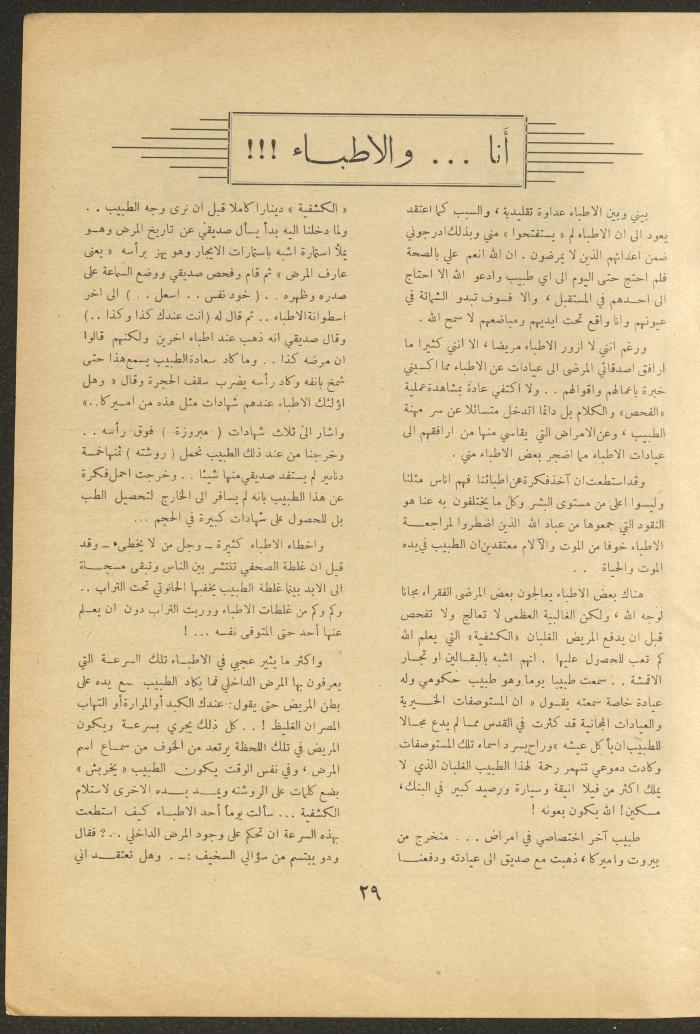 أنا ... والاطباء !!!
بيني وبين الاطباء عداوة تقليدية ، والسبب كما اعتقد
يعود الى ان الاطباء لم « يستفتحوا » مني وبذلك ادرجوني
ضمن اعدائهم الذين لا يمرضون . ان الله انعم علي بالصحة
فلم احتج حتى اليوم الى اي طبيب وادعو الله الا احتاج
الى احدهم في المستقبل ، والا فسوف تبدو الشماتة في
عيونهم وانا واقع تحت ايديهم ومباضعهم لا سمح الله .
ورغم انني لا ازور الاطباء مريضا ، الا انني كثيرا ما
ارافق اصدقائي المرضى الى عيادات عن الاطباء مما اكسبني
خبرة باعمالهم واقوالهم . . ولا اكتفي عادة بمشاهدة عملية
«الفحص» والكلام بل دائما اتدخل متسائلا عن سر مهنة
الطبيب ، وعن الامراض التي يقاسي منها من ارافقهم الى
عيادات الاطباء مما اضجر بعض الاطباء مني .
وقد استطعت ان آخذ فكرة عن اطبائنا فهم اناس مثلنا
وليسوا اعلى من مستوى البشر وكل ما يختلفون به عنا هو
النقود التي جمعوها من عباد الله الذين اضطروا لمراجعة
الاطباء خوفا من الموت والآلام معتقدين ان الطبيب في يده
الموت والحياة . .
هناك بعض الاطباء يعالجون بعض المرضى الفقراء مجانا
لوجه الله ، ولكن الغالبية العظمى لا تعالج ولا تفحص
قبل ان يدفع المريض الغلبان «الكشفية» التي يعلم الله
كم تعب للحصول عليها . انهم اشبه بالبقالين او تجار
الاقمشة . . سمعت طبيبا يوما وهو طبيب حكومي وله
عيادة خاصة سمعته يقول « ان المستوصفات الخيرية
والعيادات المجانية قد كثرت في القدس مما لم يدع مجالا
للطبيب ان يأكل عيشه » وراح يسرد اسماء تلك المستوصفات
وكادت دموعي تنهمر رحمة لهذا الطبيب الغلبان الذي لا
يملك اكثر من فيلا انيقة وسيارة ورصيد كبير في البنك،
مسكين! الله يكون بعونه !
طبيب آخر اختصاصي في امراض . . . متخرج من
بيروت واميركا ، ذهبت مع صديق الى عيادته ودفعنا
« الكشفية » دينارا كاملا قبل ان نرى وجه الطبيب . .
ولما دخلنا اليه بدأ يسأل صديقي عن تاريخ المرض وهو
يملأ استمارة اشبه باستمارات الايجار وهو يهز برأسه « يعنى
عارف المرض » ثم قام وفحص صديقي ووضع السماعة على
صدره وظهره . . ( خود نفس . . اسعل . . ) الى اخر
اسطوانة الاطباء . . ثم قال له ( انت عندك كذا وكذا . . )
وقال صديقي انه ذهب عند اطباء اخرين ولكنهم قالوا
ان مرضه كذا . . وما كاد سعادة الطبيب يسمع هذا حتى
شمخ بانفه وكاد رأسه يضرب سقف الحجرة وقال « وهل
اؤلئك الاطباء عندهم شهادات مثل هذه من اميركا . . »
واشار الى ثلاث شهادات ( مبروزة ) فوق رأسه . .
وخرجنا من عند ذلك الطبيب نحمل ( روشته ) ثمنها خمسة
دنانير لم يستفد صديقي منها شيئا . . وخرجت احمل فكرة
عن هذا الطبيب بانه لم يسافر الى الخارج لتحصيل الطب
بل للحصول على شهادات كبيرة في الحجم ...
واخطاء الاطباء كثيرة – وجل من لا يخطىء – وقد
قيل ان غلطة الصحفي تنتشر بين الناس وتبقى مسجلة
الى الابد بينما غلطة الطبيب يخفيها الحانوتي تحت التراب . .
وكم وكم من غلطات الاطباء ووريت التراب دون ان يعلم
عنها أحد حتى المتوفى نفسه ... !
واكثر ما يثير عجبي في الاطباء تلك السرعة التي
يعرفون بها المرض الداخلي فما يكاد الطبيب يضع يده على
بطن المريض حتى يقول : عندك الكبد أو المرارة أو التهاب
المصران الغليظ ! . . كل ذلك يجري بسرعة ويكون
المريض في تلك اللحظة يرتعد من الخوف من سماع اسم
المرض ، وفي نفس الوقت يكون الطبيب « يخربش »
بضع كلمات على الروشته ويمد يده الاخرى لاستلام
الكشفية ... سألت يوما أحد الاطباء كيف استطعت
بهذه السرعة ان تحكم على وجود المرض الداخلي . . ؟ فقال
وهو يبتسم من سؤالي السخيف :- . وهل تعتقد اني
٢٩